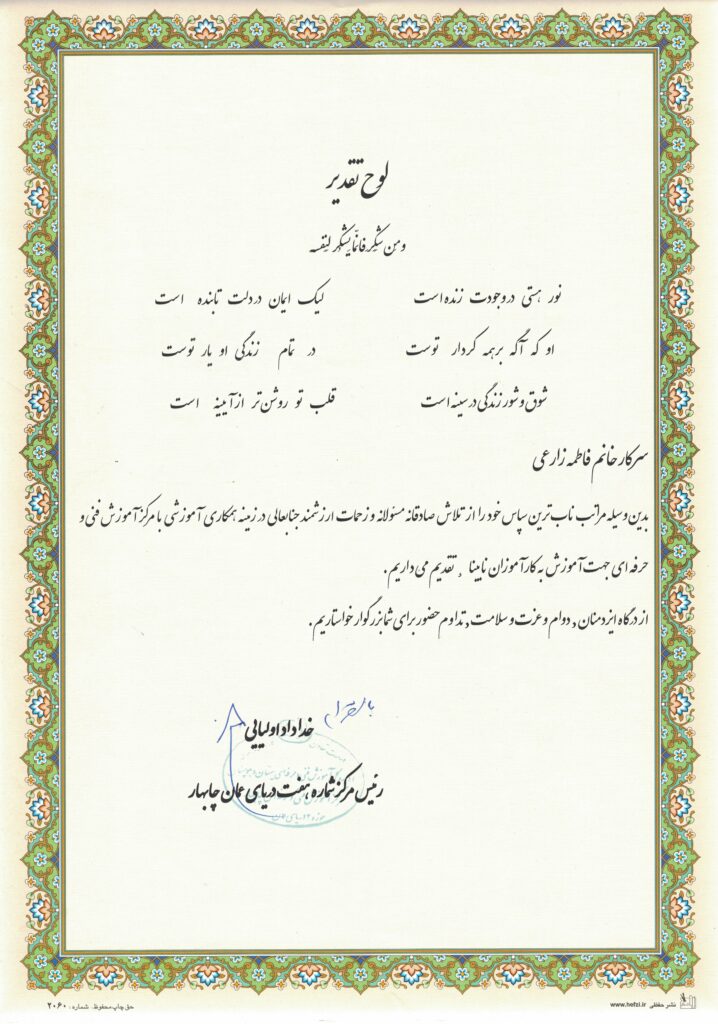 لوح تقدیر
ومن شکر فانما یشکر لنفسه
نور هستی در وجودت زنده است لیک ایمان در دلت تابنده است
او که آگه بر همه کردار توست در تمام زندگی او یار توست
شوق و شور زندگی در سینه است قلب تو روشن تر از آیینه است
سرکار خانم فاطمه زارعی
بدین وسیله مراتب ناب ترین سپاس خود را از تلاش صادقانه مسئولانه و زحمات ارزشمند جنابعالی در زمینه همکاری آموزشی با مرکز آموزش فنی و
حرفه ای جهت آموزش به کارآموزان نابینا , تقدیم می داریم.
از درگاه ایزد منان , دوام و عزت و سلامت , تداوم حضور برای شما بزرگوار خواستاریم.
با احترام
خداداد اولیایی
رئیس مرکز شماره هفت دریای عمان چابهار
نشر حفظی www.hefzi.ir
حق چاپ محفوظ. شماره: ۲۰۶۰